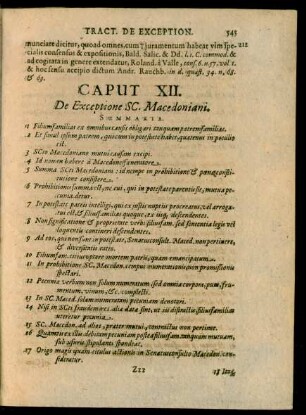 TRACT. DE EXCEPTION. 543
nunciare dicitur, quoad omnes, cum juramentum habeat vim spe- 212
cialis consensus & expositionis, Bald. Salic. & Dd. commod. &
ad cogitata in genere extendatur, Roland. à Valle, conf. 6. n. 57. vol.
& hoc sensu accipio dictum Andr. Rauchb. in d. quæst. 34. n. 68.
& 69.
CAPUT XII.
De Exceptione SC. Macedoniani.
SUMMARIA.
1 Filiumfamilias ex omnibus causis obligari tanquam patremfamilias.
2 Et simul etiam patrem, quoad in potestate habet, quatenus in peculio
est.
3 SCto Macedoniano mutui causam excipi.
4 Id nomen habere à Macedone fœneratore.
5 Summa SCti Macedoniani: id neque in prohibitione & pœnæ consti-
tutione consistere.
6 Prohibitionis summa est, ne cui, qui in potestate parentis sit, mutua pe-
cunia detur.
7 In potestate patris intelligi, qui ex justis nuptiis procreatus, vel arroga-
tus est, & filiusfamilias quoque, ex iisq; descendentes.
8 Non significatione & proprietate verbi filiusfam. sed sententia legis vel
rogantis contineri descendentes.
9 Ad eos, qui non sunt in potestate, Senatusconsult. Maced. non pertinere,
& divertendi ratio.
10 Filiumfam. circa tempus mortem patris, quam emancipatum
11 In prohibitione SC. Macedon. tempus numerationis, non promissionis
spectari.
12 Pecuniæ verbum non solum numeratum, sed omnia corpora, puta, fru-
mentum, vinum, &c. complecti.
13 In SC Maced. solam numeratam pecuniam denotari.
14 Nisi in SCti fraudem res aliæ datæ sint, ut iis distractis filiusfamilias
uteretur pecunia.
15 SC. Macedon. ad alias, præter mutui, contractus non pertinere.
16 Quamvis ex illis debitam pecuniam postea filiusfam. tanquam mutuam,
sub usuris stipulanti spondeat.
17 Origo magis quam titulus actionis in Senatusconsulto Macedon. con-
sideratur.
Zzz